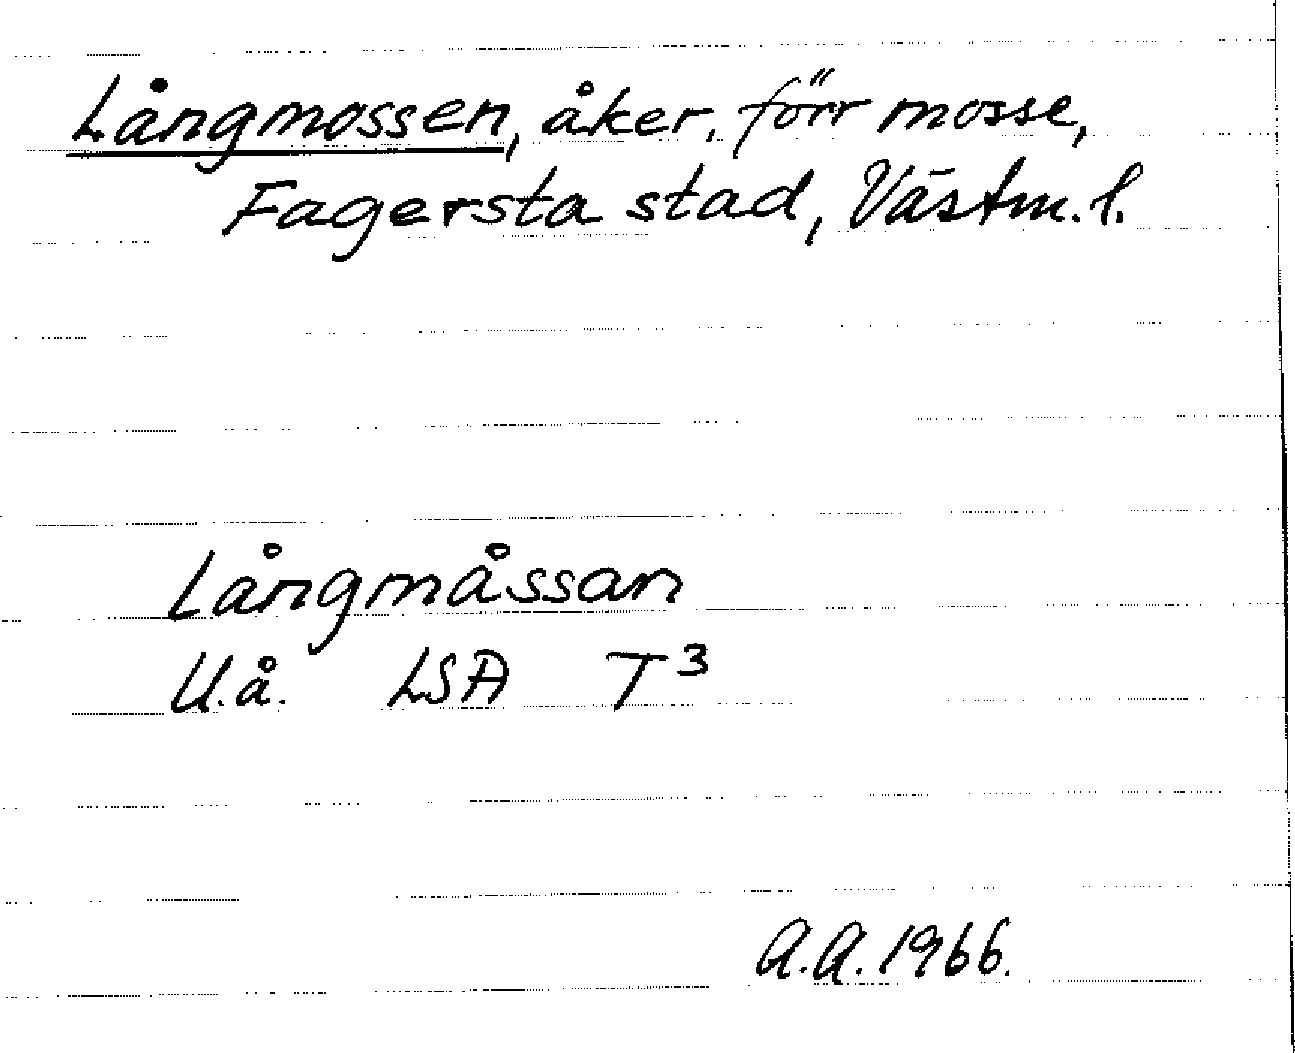 Långmossen, åker, förr mosse,
Fagersta stad, Västm. l.
Långmåssan
U.å. LSA T³
A.A. 1966.